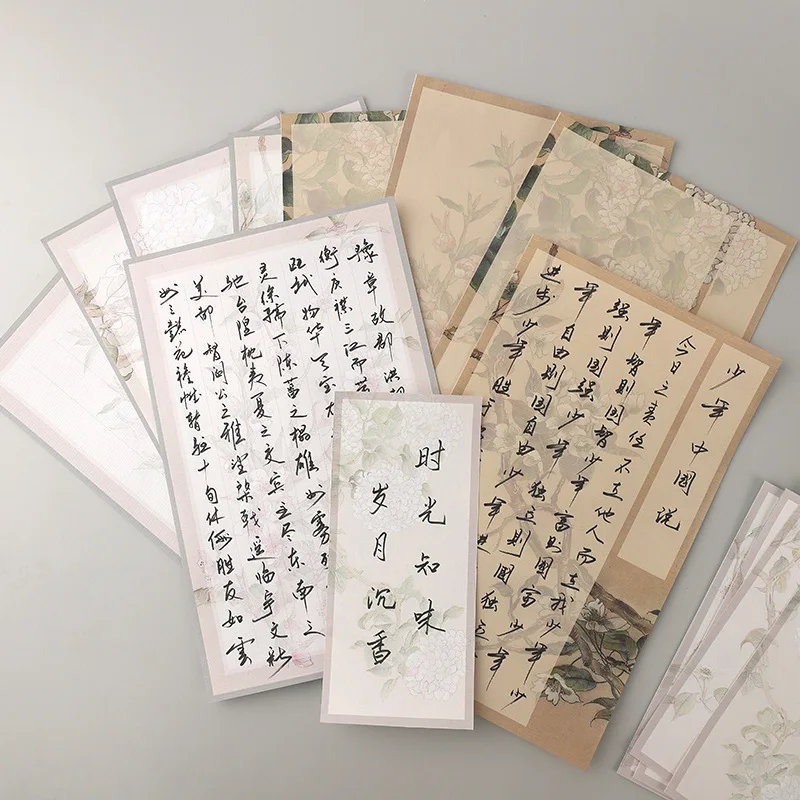 少年中国说
今日之责任不在他人而在我少
年智则国智少年富则国富少年
强则国强少年独立则国独立少
年自由则国自由少年进
步少年胜于
时光知味
岁月沉香
豫章故郡洪
衡庐襟三江而
瓯越物华天宝
灵徐孺下陈蕃之榻雄州雾列
驰台隍枕夷夏之交宾主尽东南之
美都督阎公之雅望棨戟遥临宇文新
州之懿范襜帷暂驻十旬休假胜友如雲